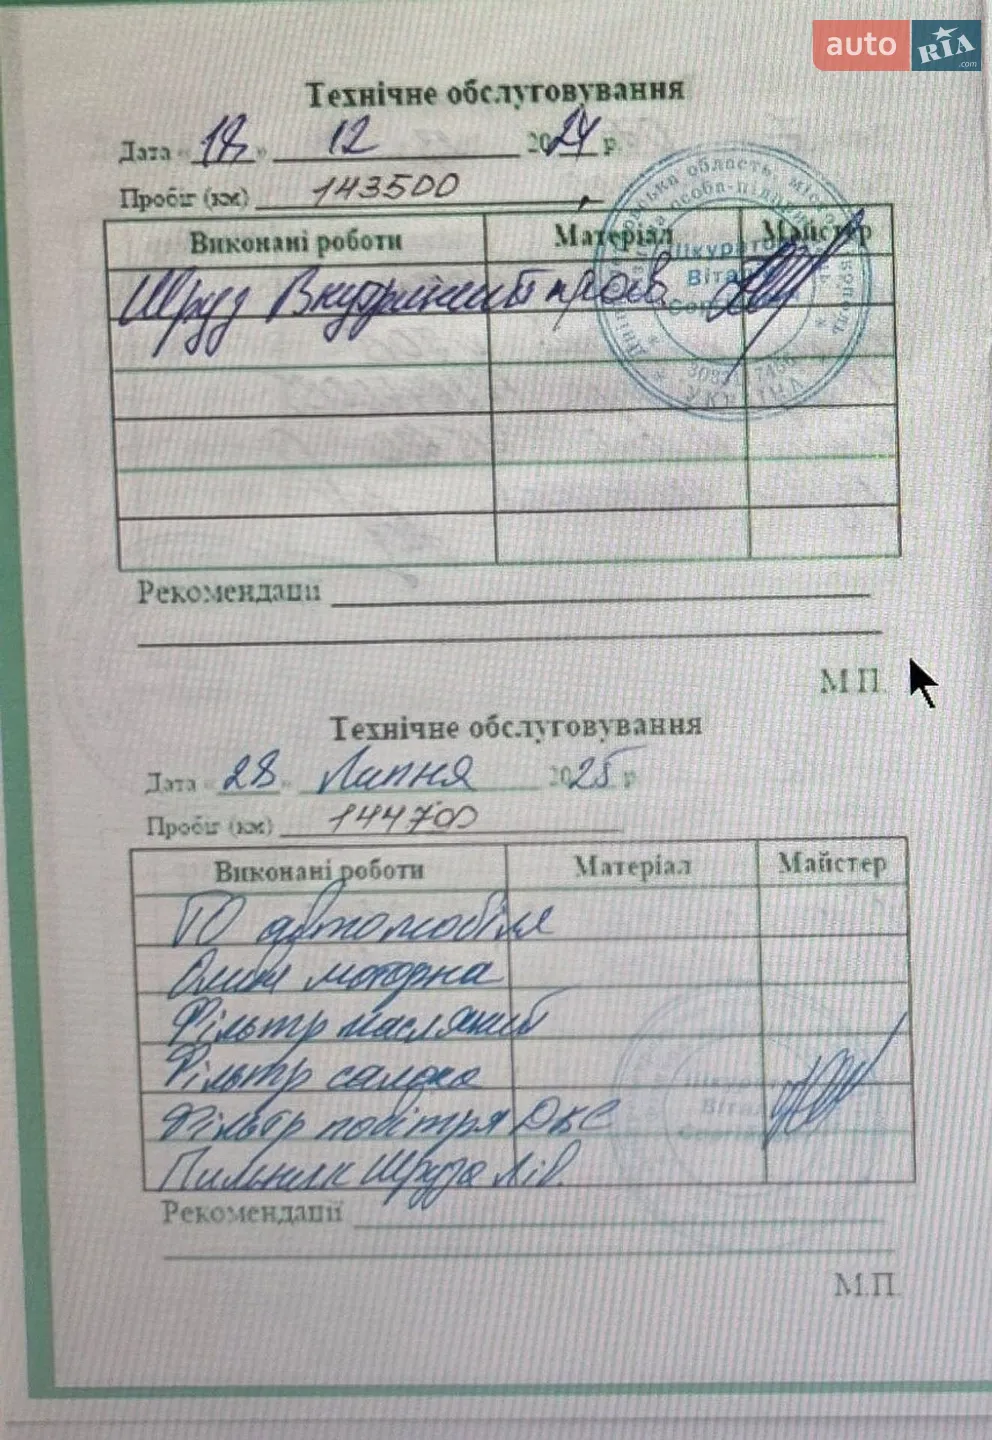 auto RIA .com
Технічне обслуговування
Дата «18» 12 2024 р.
Пробіг (км) 143500
Виконані роботи Матеріал Майстер
Шруз Внутрішній прав.
Рекомендації
М.П.
Технічне обслуговування
Дата «28» Липня 2025 р
Пробіг (км) 144700
Виконані роботи Матеріал Майстер
ТО автомобіля
Олива моторна
Фільтр масляний
Фільтр салона
Фільтр повітря ДКС
Пильник Шруза лів.
Рекомендації
М.П.
УКРАЇНА